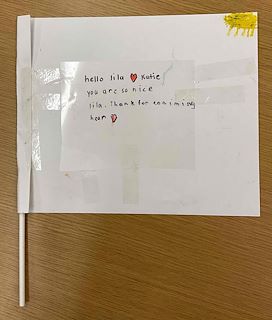 hello lila ❤ Katie
you are so nice
lila. Thank for comiming
hear ❤